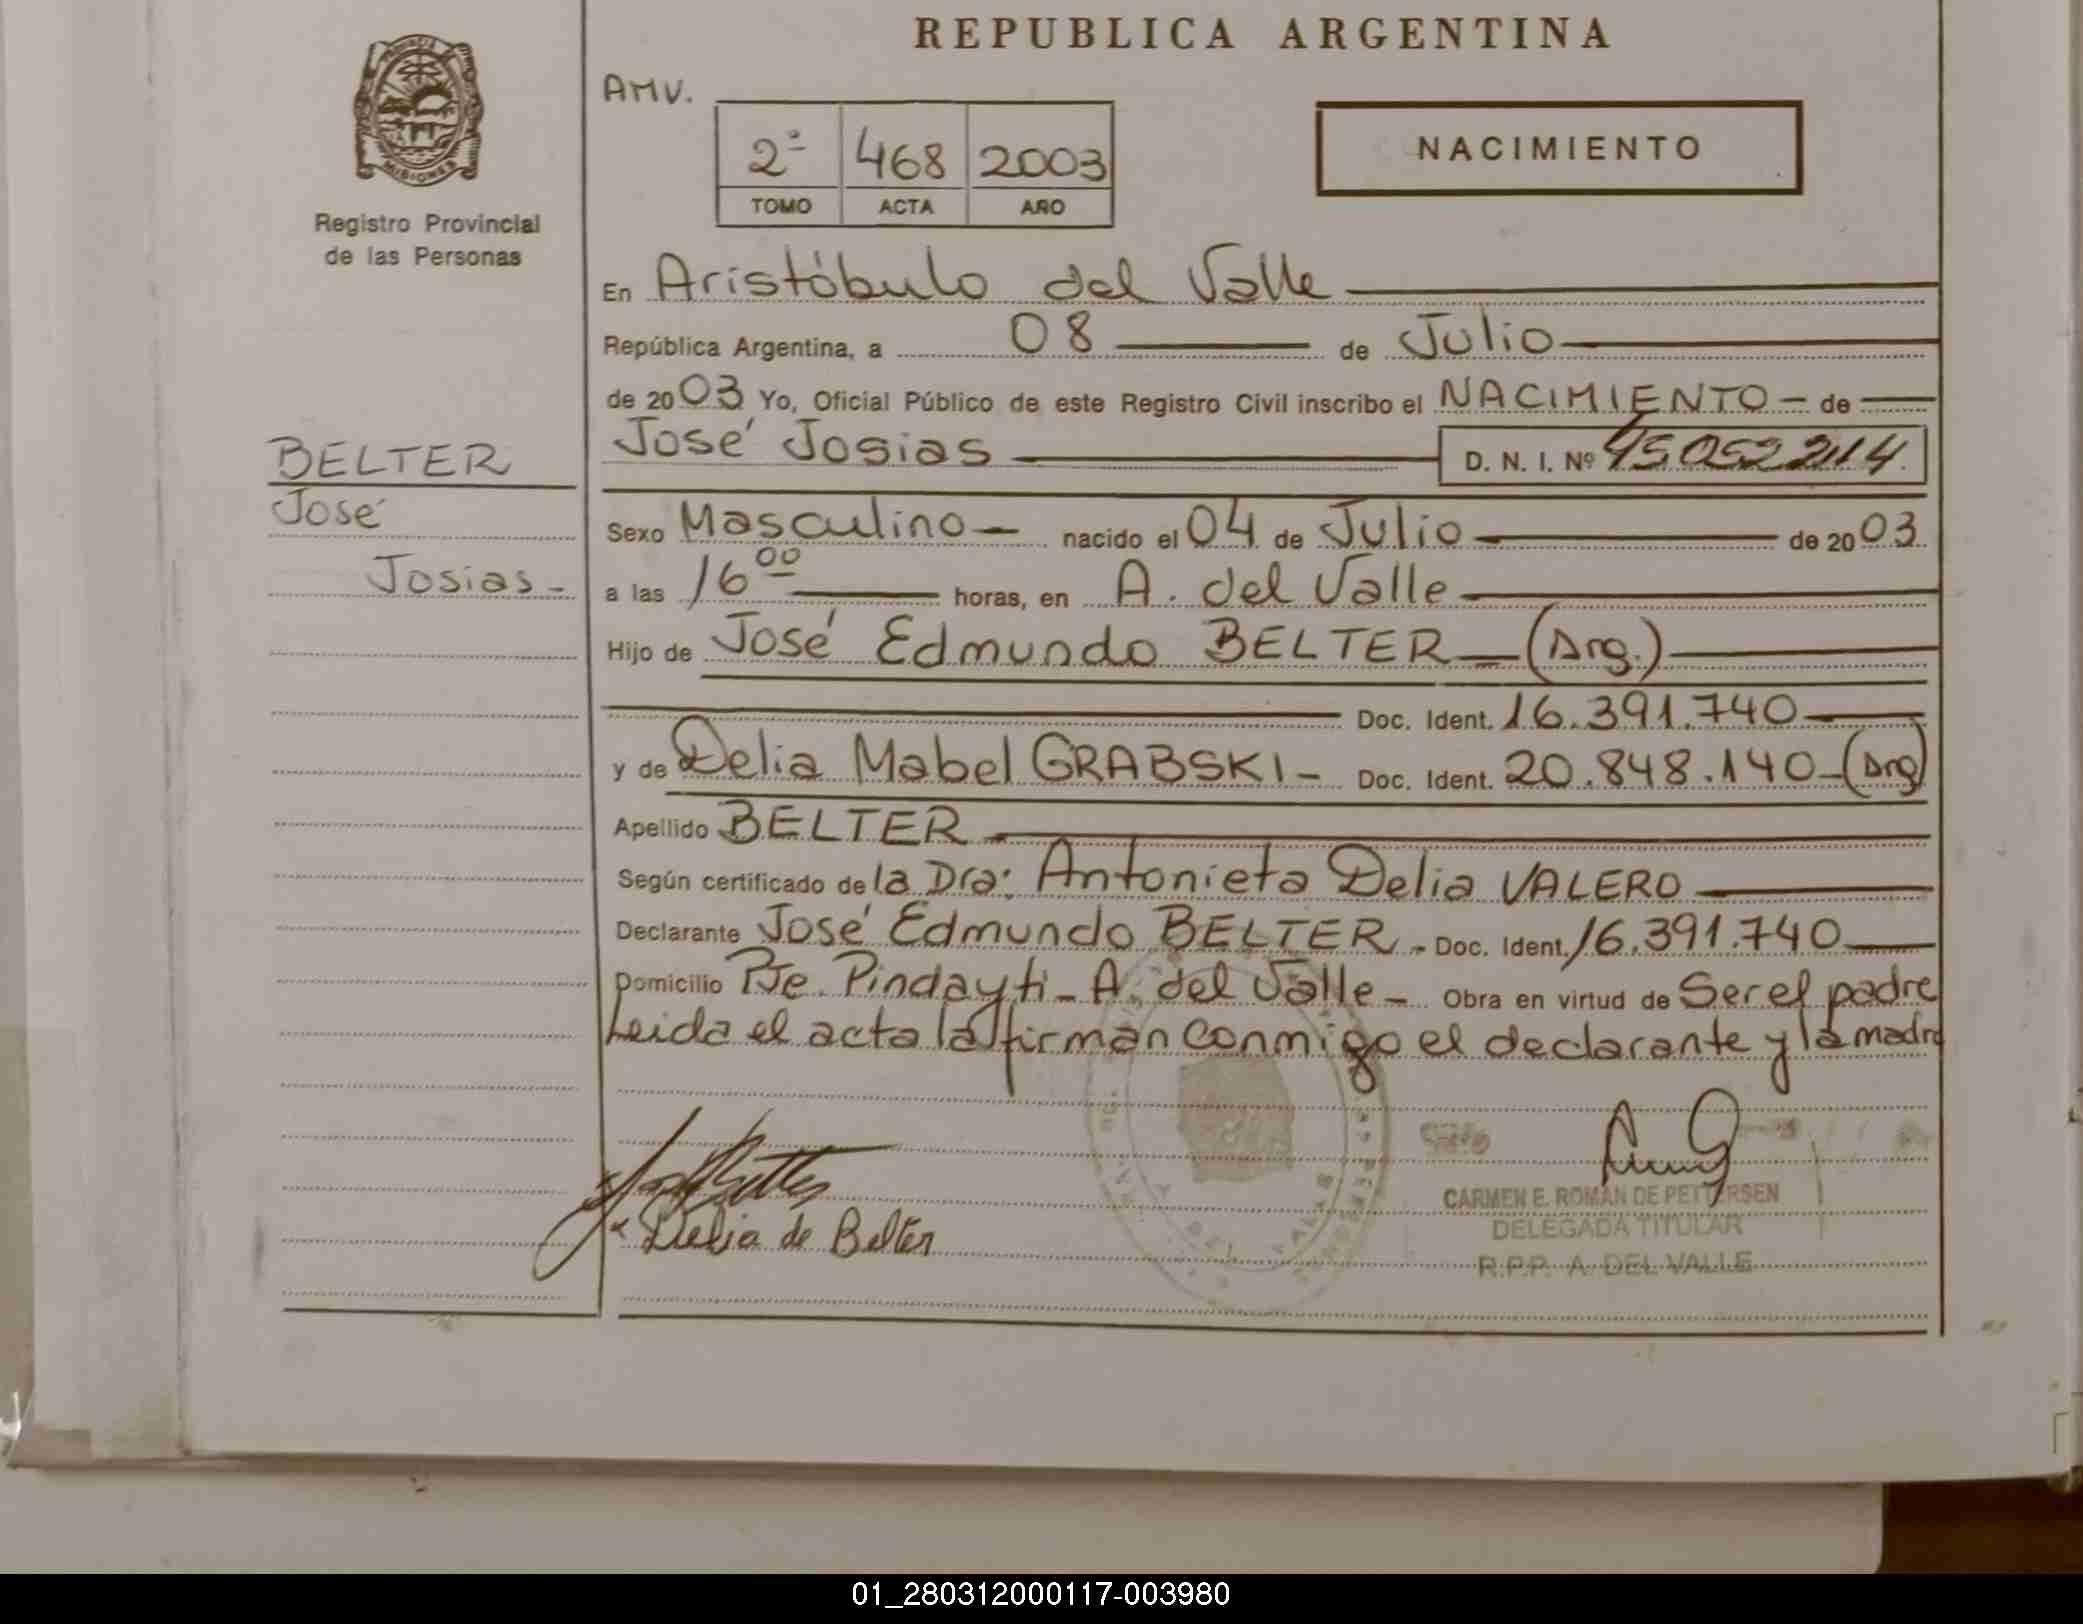 REPUBLICA ARGENTINA
AMV.
2ª 468 2003
TOMO ACTA AÑO
NACIMIENTO
MISIONES
Registro Provincial
de las Personas
BELTER
José
Josias -
En Aristóbulo del Valle
República Argentina, a 08 de Julio
de 2003 Yo, Oficial Público de este Registro Civil inscribo el NACIMIENTO - de
José Josias D. N. I. Nº
Sexo Masculino - nacido el 04 de Julio de 2003
a las 16 00 horas, en A. del Valle
Hijo de José Edmundo BELTER - (Arg.)
Doc. Ident. 16.391.740
y de Delia Mabel GRABSKI - Doc. Ident. 20.848.140 - (Arg)
Apellido BELTER
Según certificado de la Dra: Antonieta Delia VALERO
Declarante José Edmundo BELTER - Doc. Ident. 16.391.740
Domicilio Pje. Pindayti - A. del Valle - Obra en virtud de Ser el padre
Leida el acta la firman conmigo el declarante y la madre
Delia de Belter
CARMEN E. ROMAN DE PETTERSEN
DELEGADA TITULAR
R.P.P. A. DEL VALLE
01_280312000117-003980